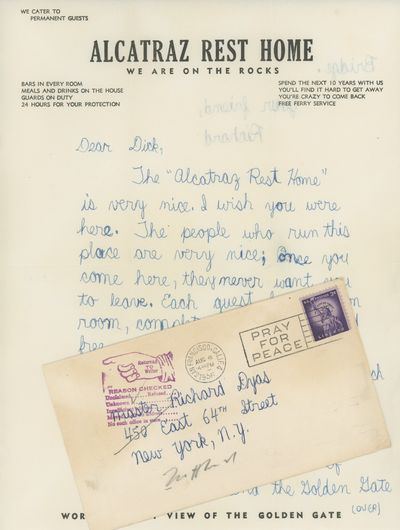 WE CATER TO
PERMANENT GUESTS
ALCATRAZ REST HOME
WE ARE ON THE ROCKS
BARS IN EVERY ROOM
MEALS AND DRINKS ON THE HOUSE
GUARDS ON DUTY
24 HOURS FOR YOUR PROTECTION
SPEND THE NEXT 10 YEARS WITH US
YOU'LL FIND IT HARD TO GET AWAY
YOU'RE CRAZY TO COME BACK
FREE FERRY SERVICE
Bridge.
your friend,
Richard
Dear Dick,
The "Alcatraz Rest Home"
is very nice. I wish you were
here. The people who run this
place are very nice; Once you
come here, they never want you
to leave. Each guest
room,
free
Returned
TO
Writer
REASON CHECKED
Unclaimed Refused
Unknown
No such office in state
SAN FRANCISCO, CALIF.
AUG
PRAY
FOR
PEACE
Master Richard Dyas
450 East 64TH Street
New York, N.Y.
of
the Golden Gate
(OVER)
VIEW OF THE GOLDEN GATE